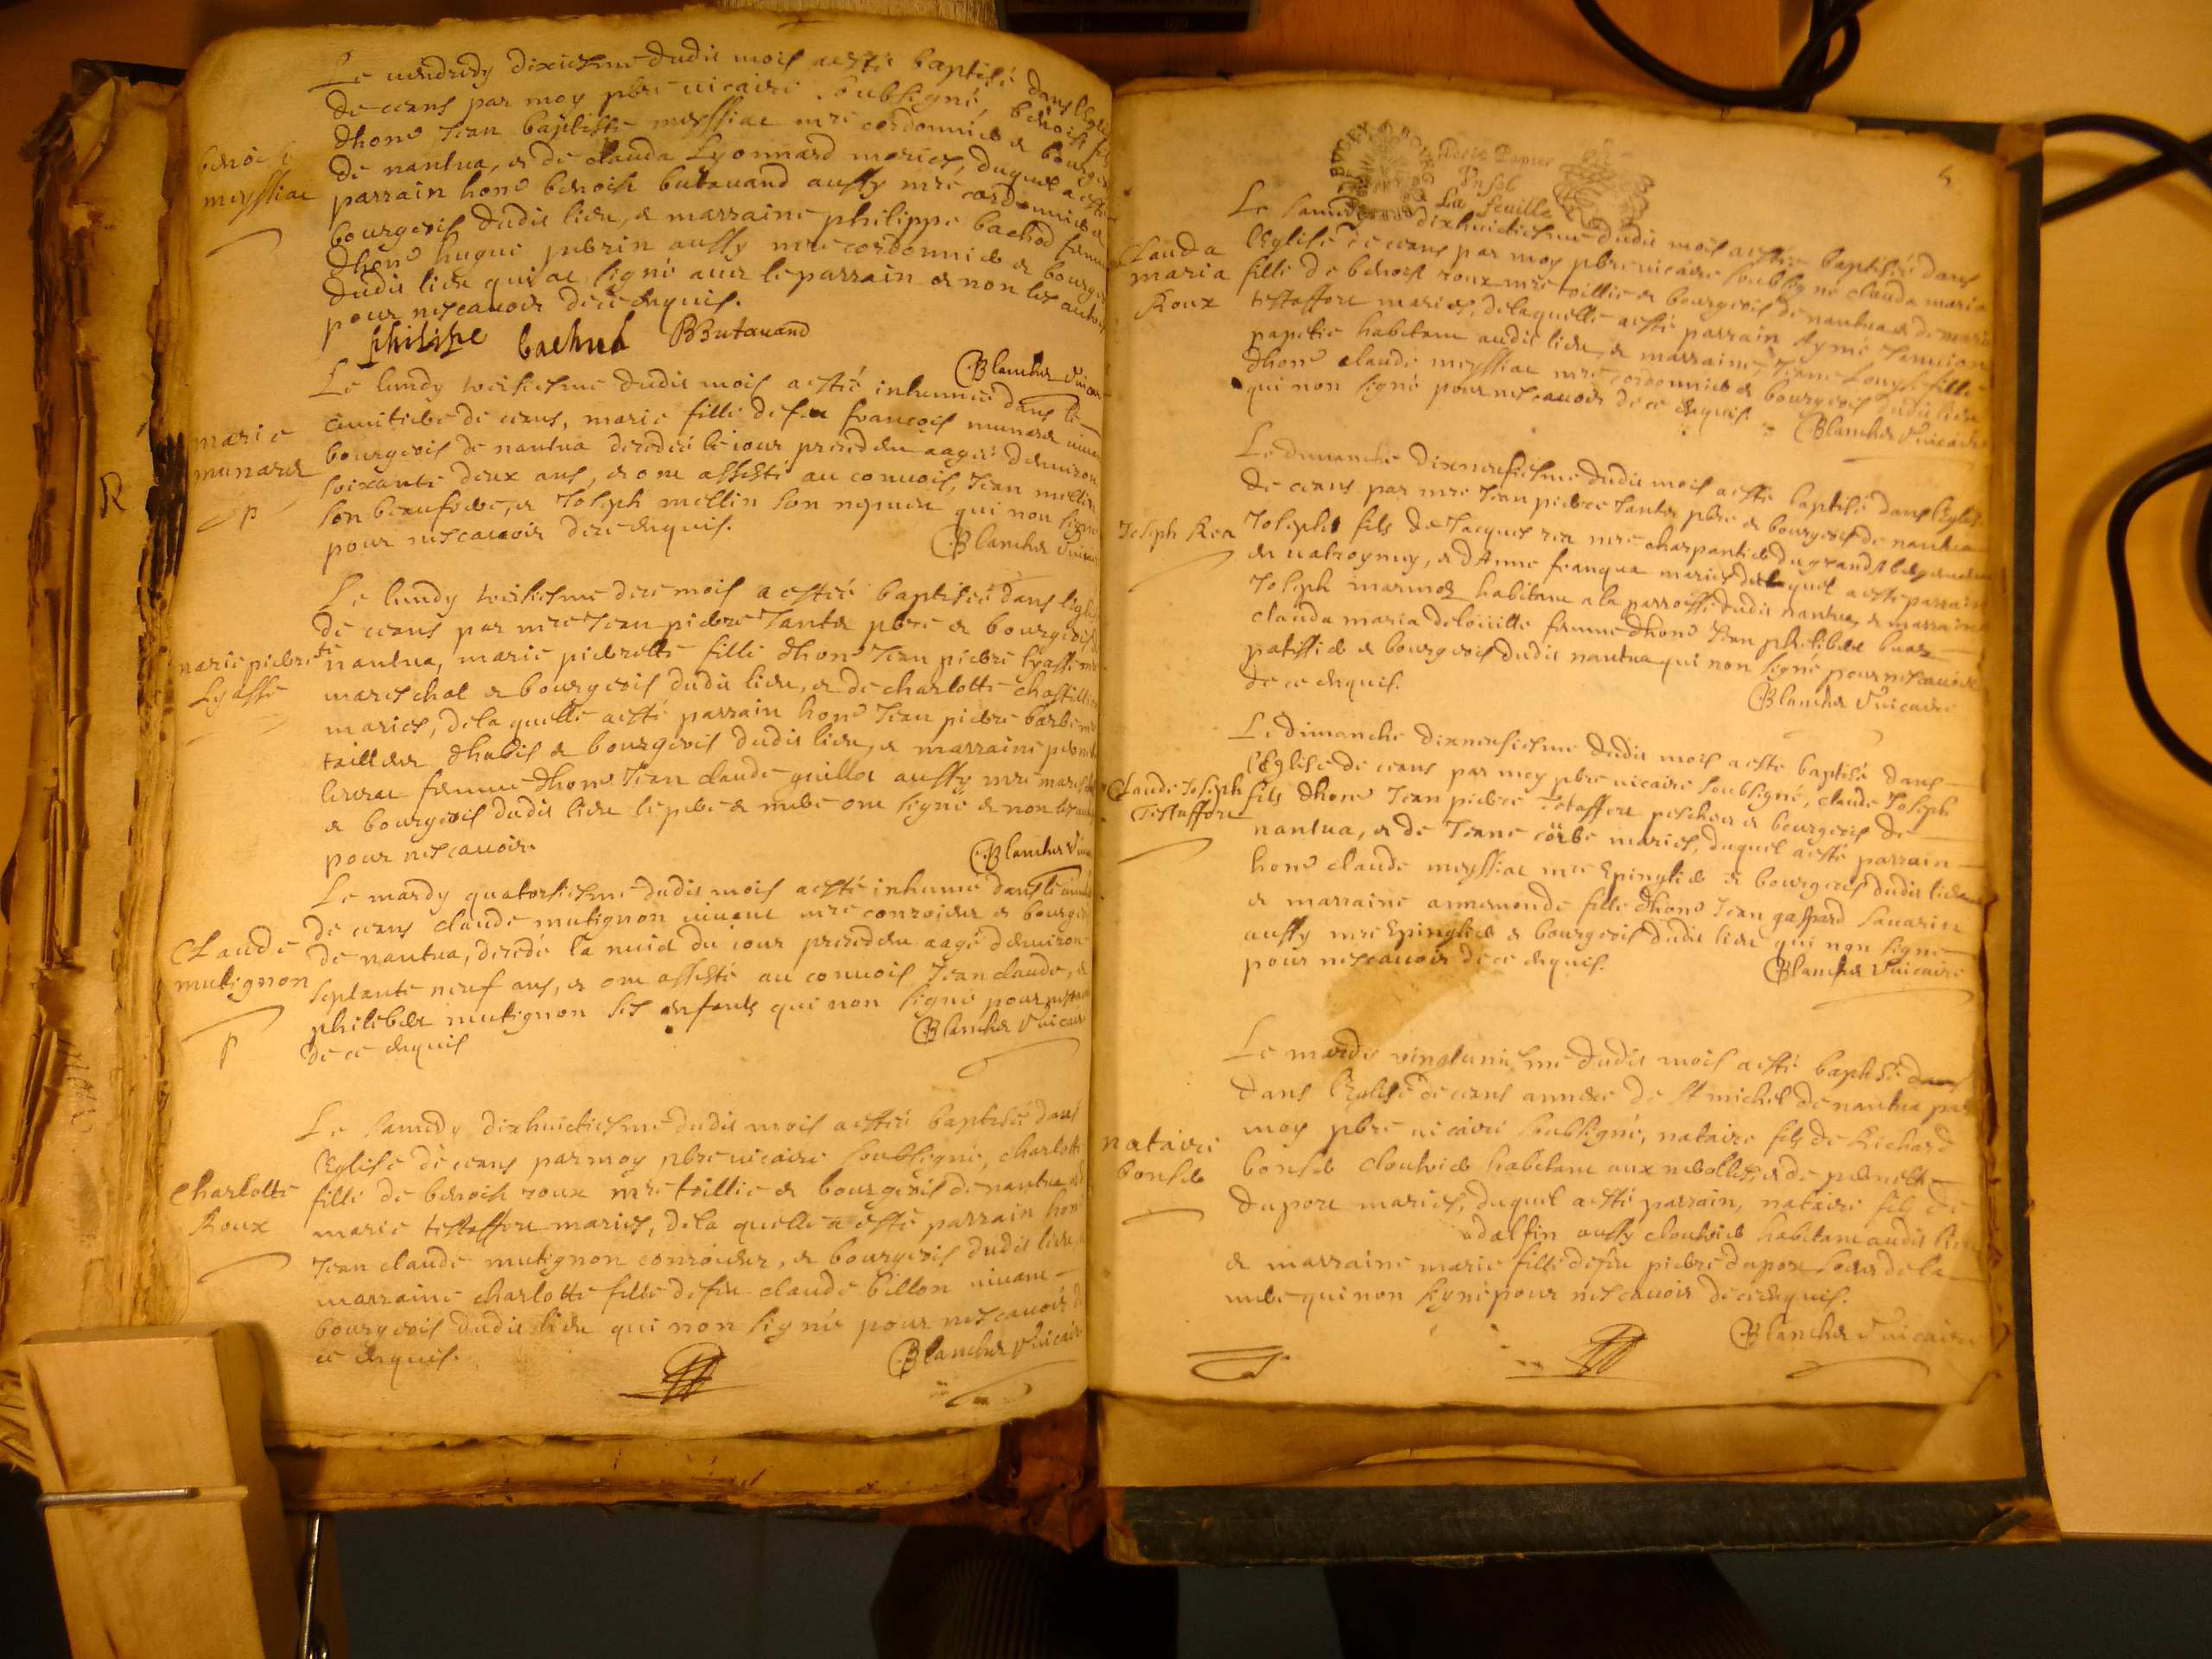 Le vendredy dixiesme dudit mois a esté baptisé dans l'Egli
de ceans par moy pbre vicaire soubsigné, benoist fils
dhone Jean baptiste meyssiat mre cordonnier et bourgeo
de nantua, et de clauda Lyonnard mariés, duquel a esté
parrain hone benoist butavand aussy mre cordonnier et
bourgeois dudit lieu, et marraine philippe bachod femme
dhone hugue pbrin aussy mre cordonnier et bourgeo
dudit lieu qui ac signé avec le parrain et non les autres
pour ne scavoir de ce enquis.
benoist
meyssiat
philipe bachod BButavand
Blanchet Vicaire
Le lundy treisiesme dudit mois a esté inhumée dans le
cimitiere de ceans, marie fille de feu francois munaret vivant
bourgeois de nantua decedée le jour precedent aagée denviron
soixante deux ans, et ont assisté au convois, Jean mellin
son beaufrere, et Joseph mellin son nepveu qui non signé
pour ne scavoir de ce enquis.
marie
munaret
p
R
Blanchet Vicaire
Le lundy treisiesme de ce mois a esté baptisée dans l'eglise
de ceans par mre Jean pierre Jantet pbre et bourgeois de
nantua, marie pierrette fille dhone Jean pierre lyasse mre
mareschal et bourgeois dudit lieu, et de charlotte chastillon
mariés, de la quelle a esté parrain hone Jean pierre barbe mre
tailleur dhabis et bourgeois dudit lieu, et marraine pernette
femme dhone Jean claude guillot aussy mre mareschal
et bourgeois dudit lieu le pere et mere ont signé et non les autres
pour ne scavoir.
marie pierrette
Lyasse
Blanchet Vicaire
Le mardy quatorsiesme dudit mois a esté inhumé dans le cimitiere
de ceans claude mutignon vivant mre conroieur et bourgeois
de nantua, decedé la nuict du jour precedent aagé denviron
septante neuf ans, et ont assisté au convois Jean claude, et
philibert mutignon ses enfants qui non signé pour ne scavoir
de ce enquis
Claude
mutignon
p
Blanchet Vicaire
Le samedy dixhuictiesme dudit mois a esté baptisée dans
l'Eglise de ceans par moy pbre vicaire soubsigné, charlotte
fille de benoist roux mre toillier et bourgeois de nantua et de
marie testaffort mariés, de la quelle a esté parrain hone
Jean claude mutignon conroieur, et bourgeois dudit lieu et
marraine charlotte fille de feu claude billon vivant
bourgeois dudit lieu qui non signé pour ne scavoir de
ce enquis.
Charlotte
Roux
Blanchet Vicaire
5
BUGEY
Un sol
La feuille
Le samedy dixhuictiesme dudit mois a esté baptisée dans
l'Eglise de ceans par moy pbre vicaire soubsigné clauda maria
fille de benoist roux mre toillier et bourgeois de nantua et de marie
testaffort mariés, de laquelle a esté parrain Aymé Tamion
papetie habitant audit lieu, et marraine Jeane Louyse fille
dhone claude meyssiat mre cordonnier et bourgeois dudit lieu
qui non signé pour ne scavoir de ce enquis.
Clauda
maria
Roux
Blanchet Vicaire
Le dimanche dixneufiesme dudit mois a esté baptisé dans l'Eglise
de ceans par mre Jean pierre Jantet pbre et bourgeois de nantua
Joseph fils de Jacques rea mre charpantier du grand
en valromey, et dAnne franqua mariés duquel a esté parrain
Joseph marmod habitant a la parroisse dudit nantua, et marraine
clauda maria deloville femme dhone Jean philibert buaz
patissier et bourgeois dudit nantua qui non signé pour ne scavoir
de ce enquis.
Joseph Rea
Blanchet Vicaire
Le dimanche dixneufiesme dudit mois a esté baptisé dans
l'Eglise de ceans par moy pbre vicaire soubsigné, claude Joseph
fils dhone Jean pierre Testaffort pescheur et bourgeois de
nantua, et de Jeane corbe mariés, duquel a esté parrain
hone claude meyssiat mre Epinglier et bourgeois dudit lieu
et marraine annemonde fille dhone Jean gaspard savarin
aussy mre Epinglier et bourgeois dudit lieu qui non signé
pour ne scavoir de ce enquis.
Claude Joseph
Testaffort
Blanchet Vicaire
Le mardi vingtuniesme dudit mois a esté baptisé dans
dans l'Eglise de ceans annexe de St michel de nantua par
moy pbre vicaire soubsigné, nataire fils de Richard
bonset cloutrier habitant aux nerolles, et de pernette
duport mariés, duquel a esté parrain, nataire fils de
dalfin aussy cloutrier habitant audit lieu
et marraine marie fille de feu pierre duport soeur de la
mere qui non signé pour ne scavoir de ce enquis.
nataire
bonset
Blanchet Vicaire